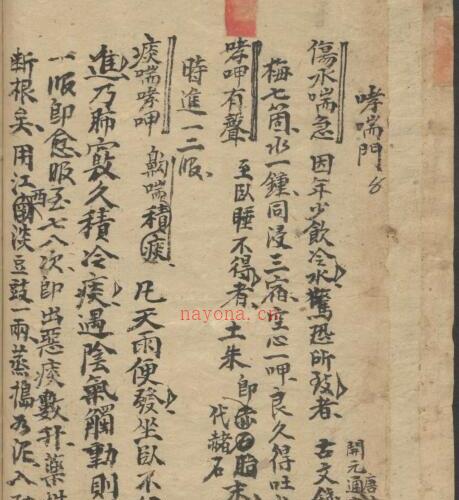 哮喘門
傷水喘急 因年少飲冷水驚恐所致者 古文錢
開元通
唐
梅七箇水一鍾同浸三宿空心一呷良久得吐
哮呷有聲 至臥睡不得者土朱 即赤石脂 代赭石 末
時進一二服
痰喘哮呷 齁喘積痰 凡天雨便發坐臥不
進乃肺竅久積冷痰遇陰氣觸動則
一服即愈服至七八次即出惡痰數升藥
断根矣用江西淡豆豉一兩蒸搗為泥入
nayona.cn